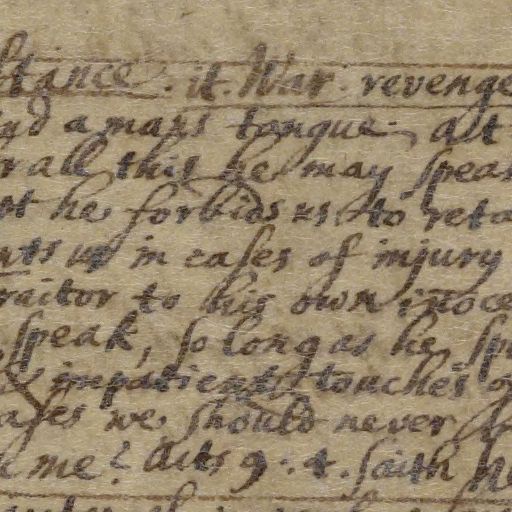 stance. it. War. revenge
a mans tongue. at
r all this he may speak
he forbids us to reta
us in cases of injury
raitor to his own inoce
speak, so long as he sp
impatient touches of
ases we should never
me? Acts 9:4. saith he